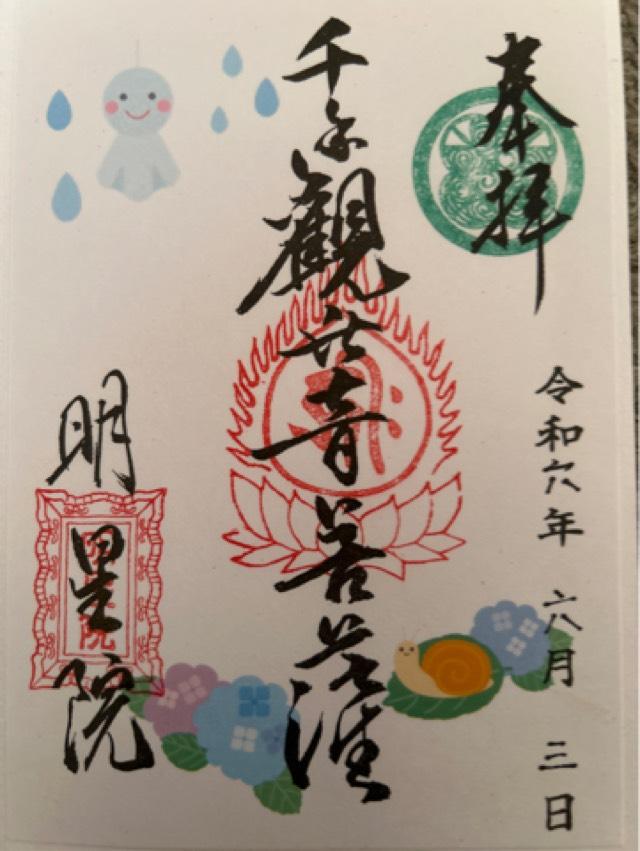 奉拝
令和六年 六月 三日
千手觀世音菩薩
明星院